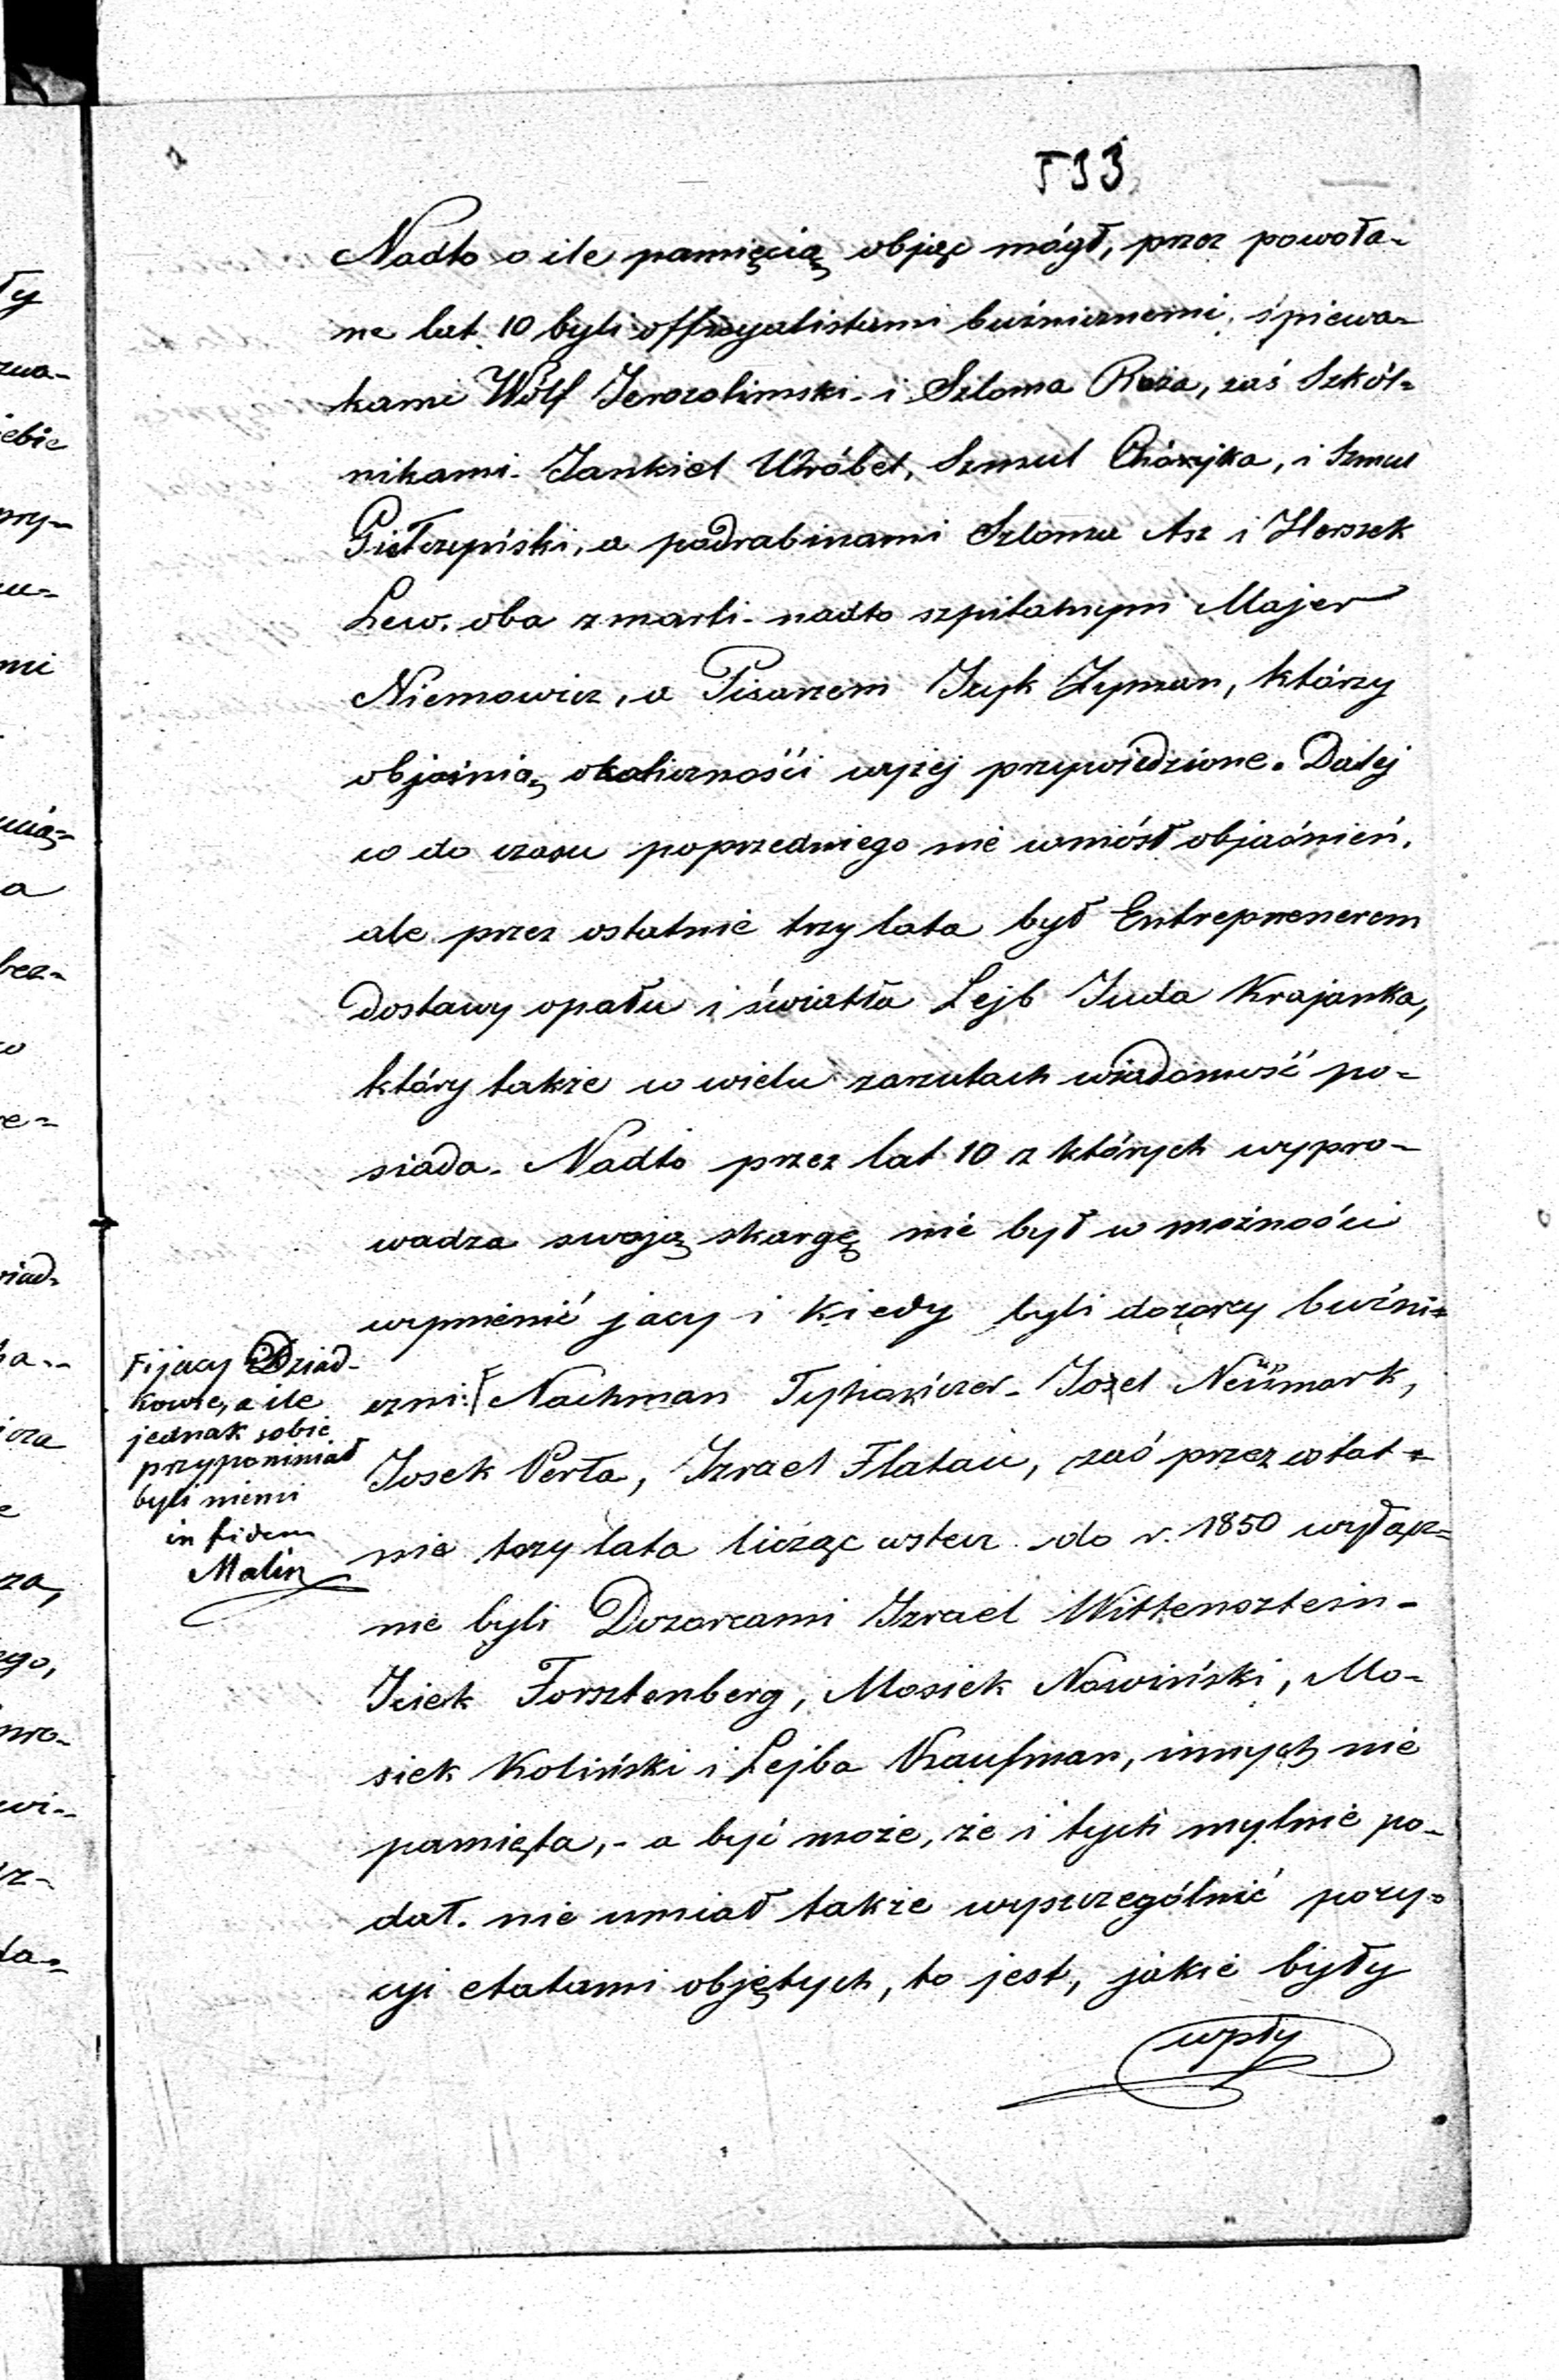 533
Nadto o ile pamięcią objąć mógł, przez powoła-
ne lat 10 byli offisyalistami bużnicznemi, śpiewa-
kami Wolf Jerozolimski i Szloma Roza, zaś Szkól-
nikami Jankiel Wróbel, Szmul i Szmul
a podrabinami Szloma Asz i Herszek
Lew, oba zmarli - nadto szpitalnym Majer
Niemowicz, a Pisarzem Icyk Zyman, którzy
objaśnią okoliczności wyżej przywiedzione. Dalej
co do czasu poprzedniego nie wniósł objaśnień,
ale przez ostatnie trzy lata był Entreprenerem
Dostawy opału i światła Lejb Juda Krajanka,
który także w wielu zarzutach wiadomość po-
siada. Nadto przez lat 10 z których wypro-
wadza swoją skargę nie był w możności
wymienić jacy i kiedy byli dozorcy buźni-
czni: F Nachman Josel Neümark,
Josek Perła, Izrael Flatau, zaś przez ostat-
nie trzy lata licząc wstecz do r. 1850 wyłącz-
nie byli Dozorcami Izrael Wittensztein -
Iciek Forsztenberg, Mosiek Nowiński, Mo-
siek Koliński i Lejba Kaufman, innych nie
pamięta, - a być może, że i tych mylnie po-
dał. nie umiał także wyszczególnić pozy-
cyi etatami objętych, to jest, jakie były
wpły
F i jacy Dziad-
kowie, o ile
jednak sobie
przypominiał
byli niemi
in fidem
Malin